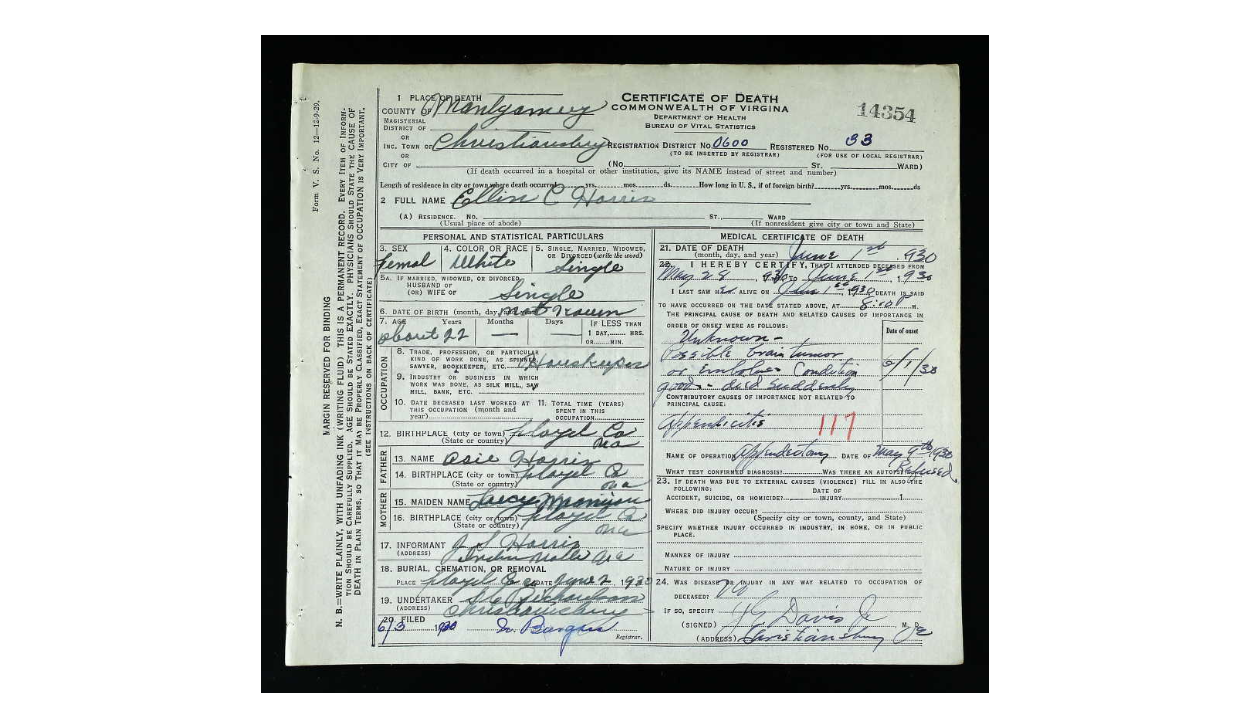 Form V. S. No. 12—12-9-29.
MARGIN RESERVED FOR BINDING
N. B.—WRITE PLAINLY, WITH UNFADING INK (WRITING FLUID) THIS IS A PERMANENT RECORD. EVERY ITEM OF INFORM-
TION SHOULD BE CAREFULLY SUPPLIED. AGE SHOULD BE STATED EXACTLY. PHYSICIANS SHOULD STATE THE CAUSE OF
DEATH IN PLAIN TERMS, SO THAT IT MAY BE PROPERLY CLASSIFIED. EXACT STATEMENT OF OCCUPATION IS VERY IMPORTANT.
(SEE INSTRUCTIONS ON BACK OF CERTIFICATE)
CERTIFICATE OF DEATH
COMMONWEALTH OF VIRGINIA
DEPARTMENT OF HEALTH
BUREAU OF VITAL STATISTICS
14354
1 PLACE OF DEATH
COUNTY OF Montgomery
MAGISTERIAL
DISTRICT OF
OR
INC. TOWN OF Christiansburg REGISTRATION DISTRICT No. 0600 REGISTERED No. 33
(TO BE INSERTED BY REGISTRAR) (FOR USE OF LOCAL REGISTRAR)
OR
CITY OF (No. ST. WARD)
(If death occurred in a hospital or other institution, give its NAME instead of street and number)
Length of residence in city or town where death occurred yrs. mos. ds. How long in U. S., if of foreign birth? yrs. mos. ds
2 FULL NAME Ellin C Harris
(A) RESIDENCE. No. ST., WARD
(Usual place of abode) (If nonresident give city or town and State)
PERSONAL AND STATISTICAL PARTICULARS
3. SEX 4. COLOR OR RACE 5. SINGLE, MARRIED, WIDOWED,
OR DIVORCED (write the word)
femal White Single
5A. IF MARRIED, WIDOWED, OR DIVORCED
HUSBAND OF
(OR) WIFE OF Single
6. DATE OF BIRTH (month, day,
7. AGE Years Months Days IF LESS THAN
1 DAY, HRS.
OR MIN.
about 22 — —
OCCUPATION
8. TRADE, PROFESSION, OR PARTICULAR
KIND OF WORK DONE, AS SPINNER,
SAWYER, BOOKKEEPER, ETC.
9. INDUSTRY OR BUSINESS IN WHICH
WORK WAS DONE, AS SILK MILL, SAW
MILL, BANK, ETC.
10. DATE DECEASED LAST WORKED AT 11. TOTAL TIME (YEARS)
THIS OCCUPATION (month and SPENT IN THIS
year) OCCUPATION
12. BIRTHPLACE (city or town) Floyd Co
(State or country) Va
FATHER
13. NAME Asie Harris
14. BIRTHPLACE (city or town) Floyd Co
(State or country) Va
MOTHER
15. MAIDEN NAME
16. BIRTHPLACE (city or town) Floyd Co
(State or country) Va
17. INFORMANT J S Harris
(ADDRESS)
18. BURIAL, CREMATION, OR REMOVAL
PLACE Floyd Co DATE June 2, 1930
19. UNDERTAKER Richardson
(ADDRESS) Christiansburg
20. FILED 6/3 1930
Registrar.
MEDICAL CERTIFICATE OF DEATH
21. DATE OF DEATH
(month, day, and year) June 1st 1930
22. I HEREBY CERTIFY, THAT I ATTENDED DECEASED FROM
May 28, 1930 TO June 1st, 1930
I LAST SAW H ALIVE ON June 1st 1930 DEATH IS SAID
TO HAVE OCCURRED ON THE DATE STATED ABOVE, AT 8:00 P M.
THE PRINCIPAL CAUSE OF DEATH AND RELATED CAUSES OF IMPORTANCE IN
ORDER OF ONSET WERE AS FOLLOWS:
Date of onset
Unknown -
Possible brain tumor
or Embolus Condition 6/1/30
good - died suddenly
CONTRIBUTORY CAUSES OF IMPORTANCE NOT RELATED TO
PRINCIPAL CAUSE:
Appendicitis 117
NAME OF OPERATION Appendectomy DATE OF May 9th 1930
WHAT TEST CONFIRMED DIAGNOSIS? WAS THERE AN AUTOPSY Refused
23. IF DEATH WAS DUE TO EXTERNAL CAUSES (VIOLENCE) FILL IN ALSO THE
FOLLOWING:
DATE OF
ACCIDENT, SUICIDE, OR HOMICIDE? INJURY 1
WHERE DID INJURY OCCUR?
(Specify city or town, county, and State)
SPECIFY WHETHER INJURY OCCURRED IN INDUSTRY, IN HOME, OR IN PUBLIC
PLACE.
MANNER OF INJURY
NATURE OF INJURY
24. WAS DISEASE OR INJURY IN ANY WAY RELATED TO OCCUPATION OF
DECEASED? No
IF SO, SPECIFY
(SIGNED) Davis Jr M. D.
(ADDRESS) Christiansburg Va